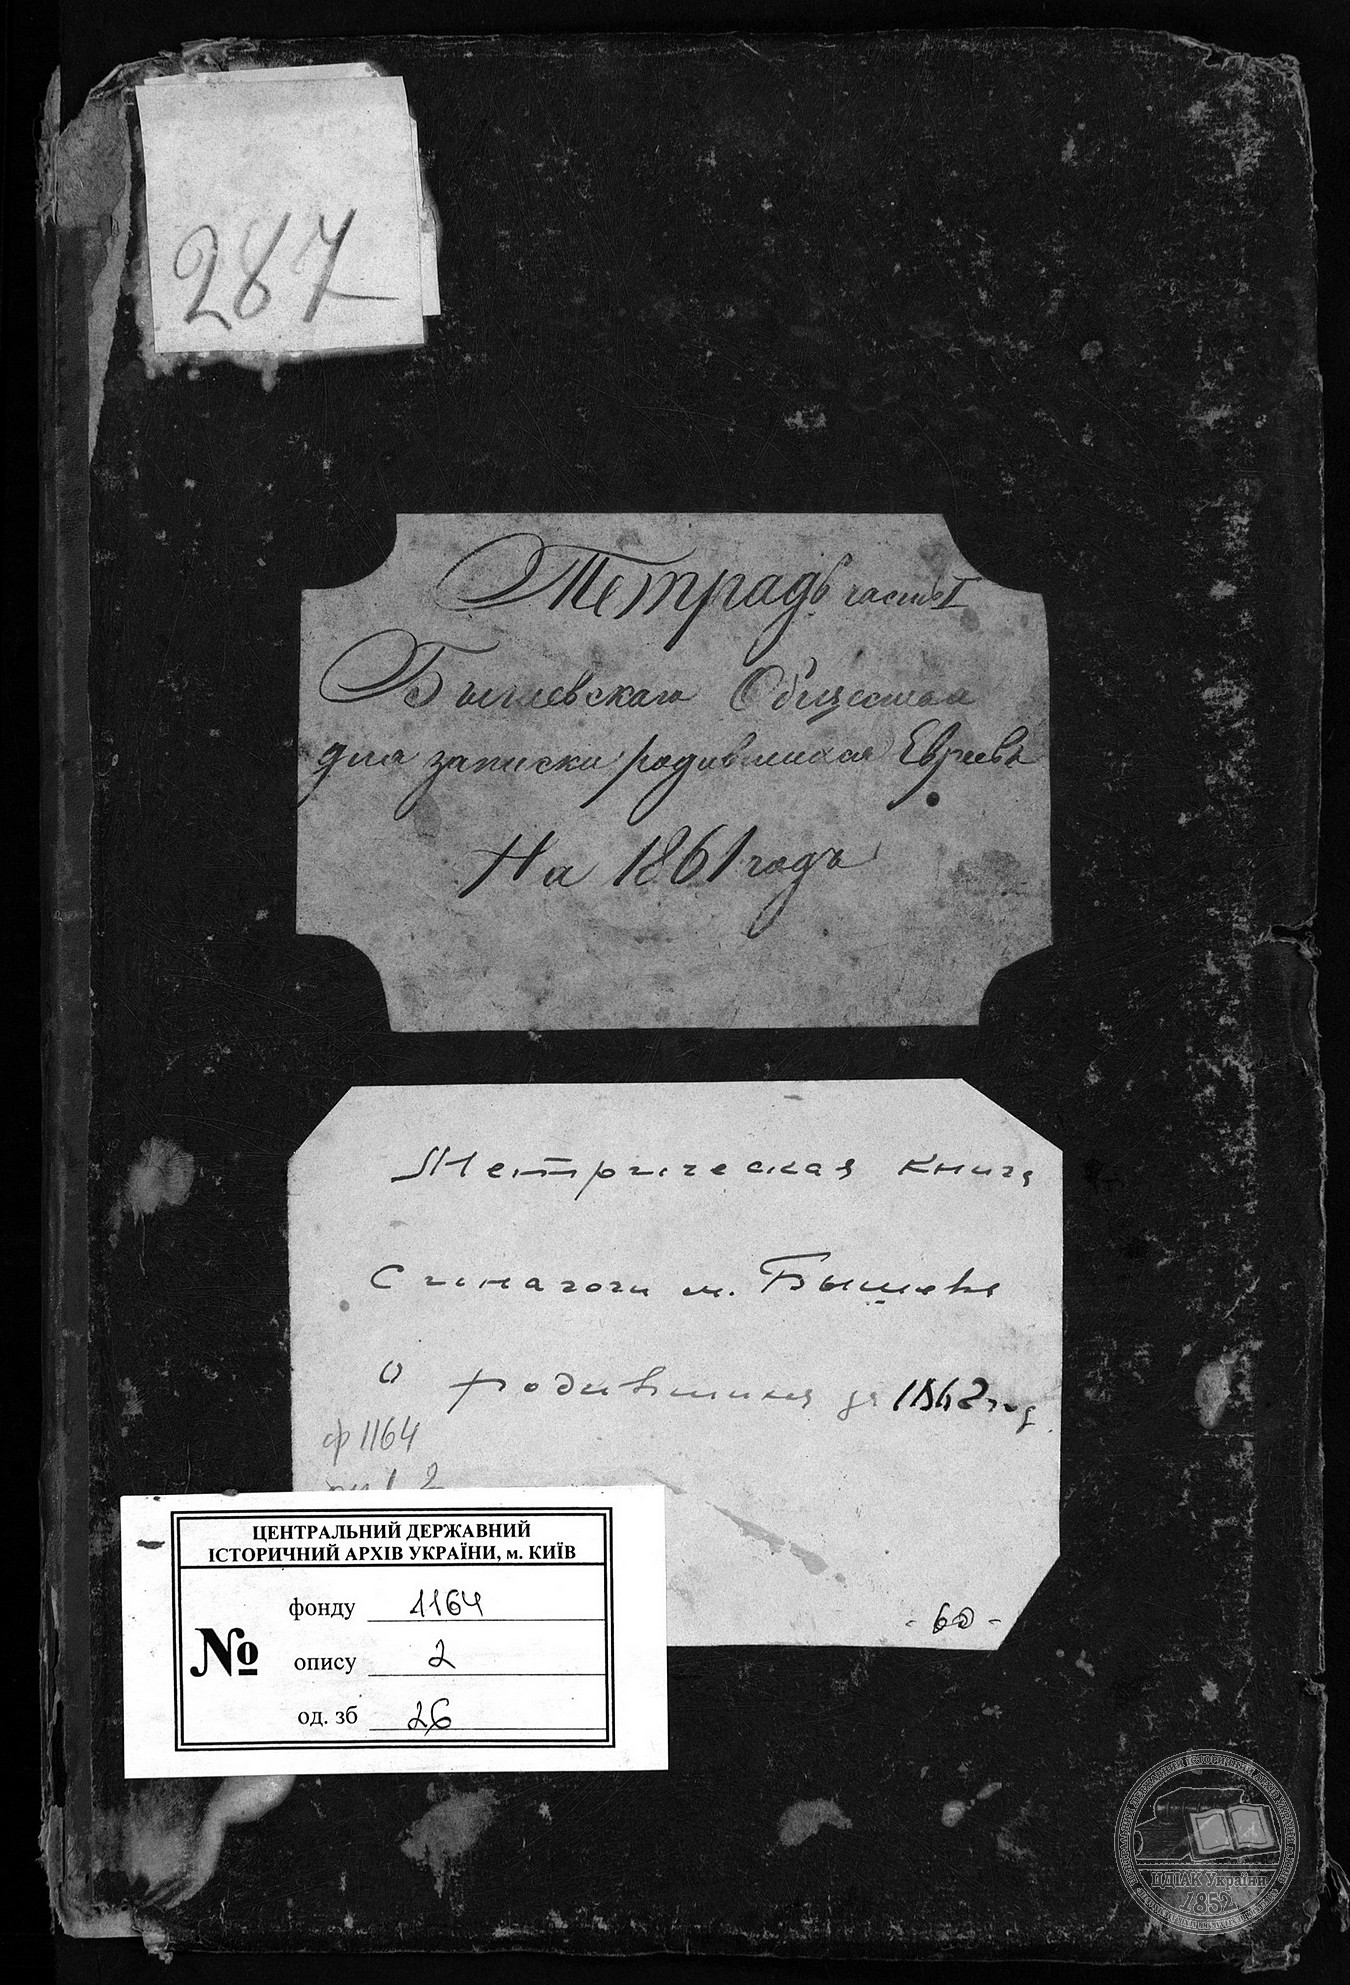 287
Тетрадь часть I
Бышевскаго Общества
для записки родившихся Евреевъ
На 1861 годъ
Метрическая книга
синагоги м. Бышева
о родившихся за 1862 год
ф 1164
2
- 60 -
ЦЕНТРАЛЬНИЙ ДЕРЖАВНИЙ
ІСТОРИЧНИЙ АРХІВ УКРАЇНИ, м. КИЇВ
фонду 1164
№ опису 2
од. зб 26
ЦДІАК України
1852